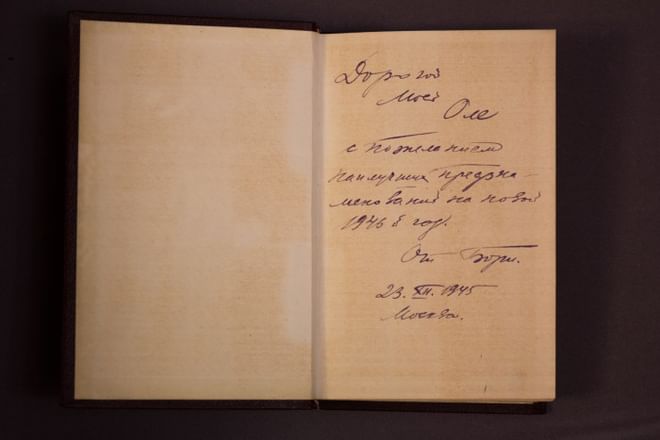 Дорогой
Моей
Оле
с пожеланием
наилучших предзна-
менований на новый
1946 й год.
От Бори.
23. XII. 1945
Москва.